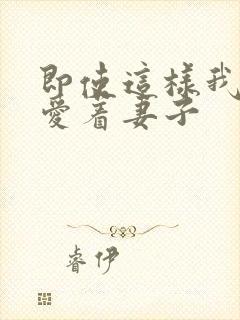 即使這樣我
愛着妻子
睿伊